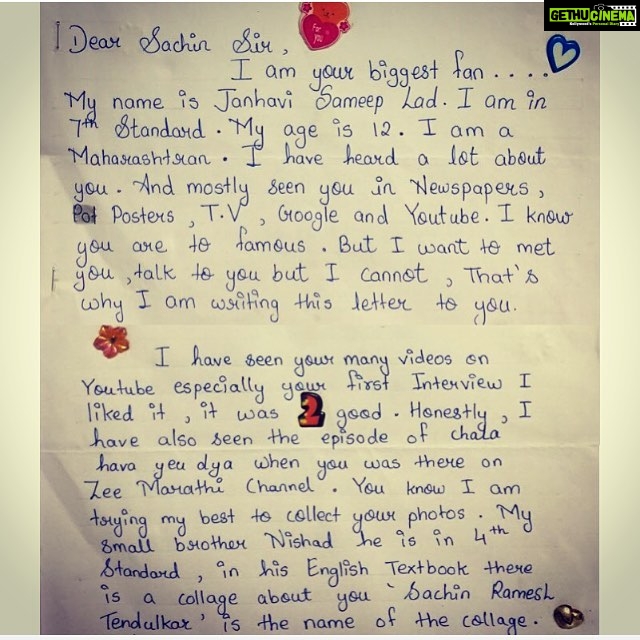 GETHUCINEMA
Dear Sachin Sir,
I am your biggest fan ....
My name is Janhavi Sameep Lad. I am in
7th Standard. My age is 12. I am a
Maharashtran. I have heard a lot about
you. And mostly seen you in Newspapers,
Posters, T.V, Google and Youtube. I know
you are to famous. But I want to met
you, talk to you but I cannot, That's
why I am writing this letter to you.
I have seen your many videos on
Youtube especially your first Interview I
liked it, it was 2 good. Honestly, I
have also seen the episode of chala
hava yeu dya when you was there on
Zee Marathi Channel. You know I am
trying my best to collect your photos. My
small brother Nishad he is in 4th
Standard, in his English Textbook there
is a collage about you 'Sachin Ramesh
Tendulkar' is the name of the collage.